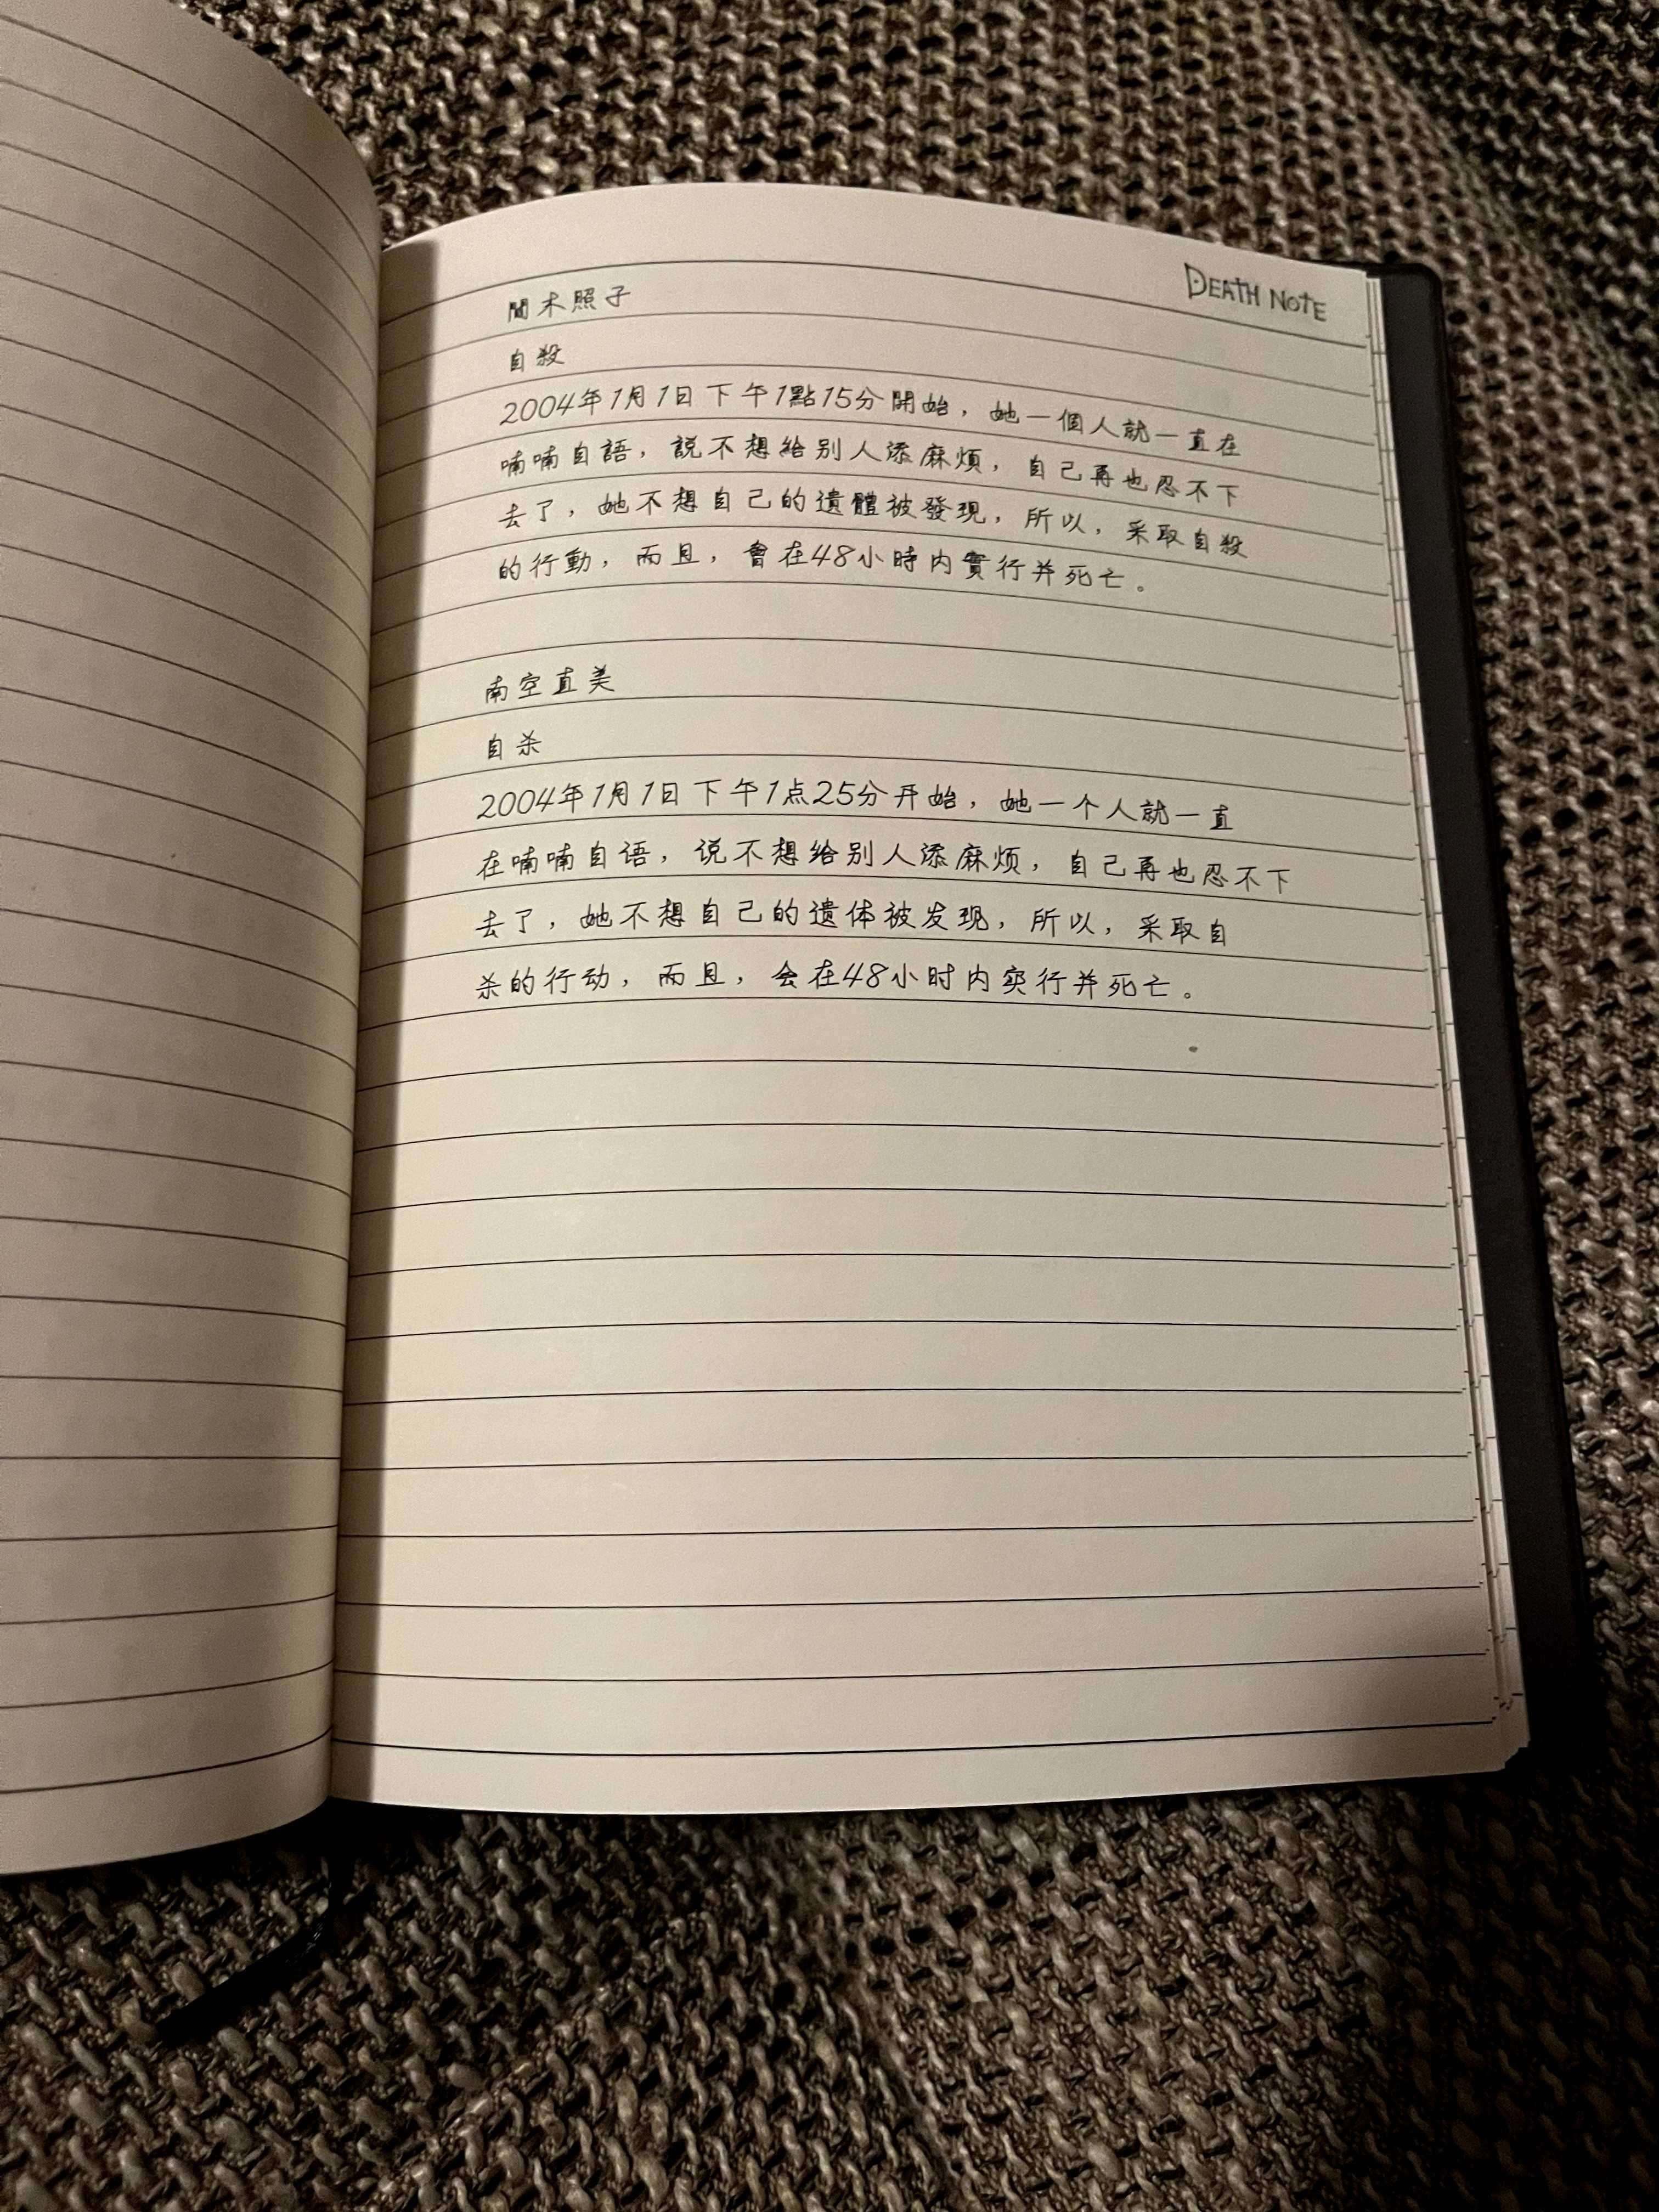 DEATH NOTE
間木照子
自殺
2004年1月1日下午1點15分開始，她一個人就一直在
喃喃自語，説不想給别人添麻煩，自己再也忍不下
去了，她不想自己的遺體被發現，所以，采取自殺
的行動，而且，會在48小時内實行并死亡。
南空直美
自杀
2004年1月1日下午1点25分开始，她一个人就一直
在喃喃自语，说不想给别人添麻烦，自己再也忍不下
去了，她不想自己的遗体被发现，所以，采取自
杀的行动，而且，会在48小时内实行并死亡。